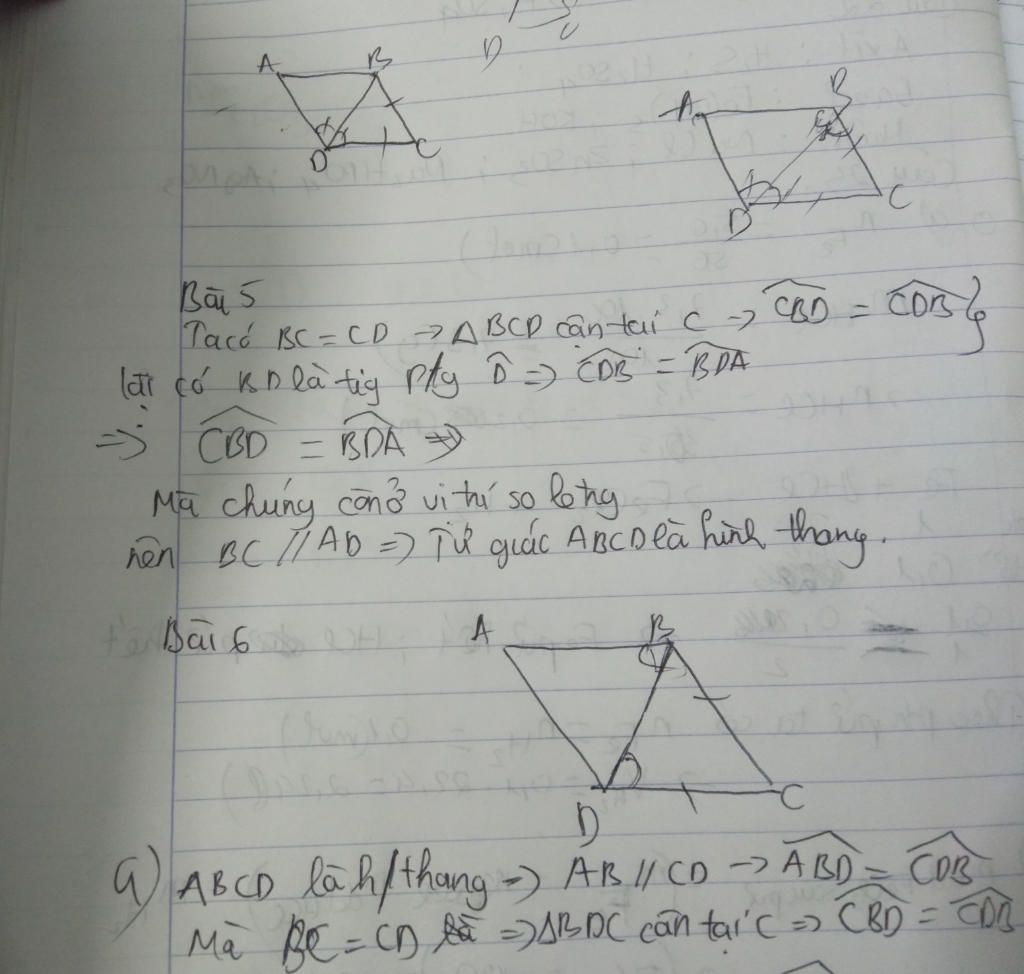 D
A B
D C
A B
D C
Bài 5
Ta có BC = CD → ΔBCD cân tại C → CBD = CDB }
lại có BD là tig p/g D̂ => CDB = BDA
=> CBD = BDA
Mà chúng còn ở vi trí so letrg
nên BC // AD => Tứ giác ABCD là hình thang.
Bài 6
A B
D C
a) ABCD là h/thang → AB // CD → ABD = CDB
Mà BC = CD => ΔBDC cân tại C => CBD = CDB